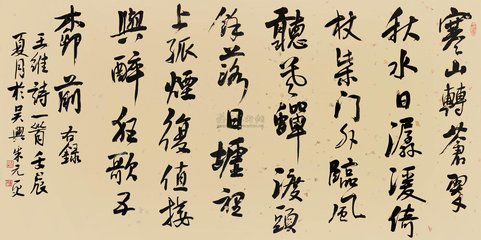 寒山轉蒼翠
秋水日潺湲倚
杖柴門外臨風
聽暮蟬渡頭
餘落日墟裡
上孤煙復值接
輿醉狂歌五
柳前 右錄
王維詩一首壬辰
夏月於吳興朱元